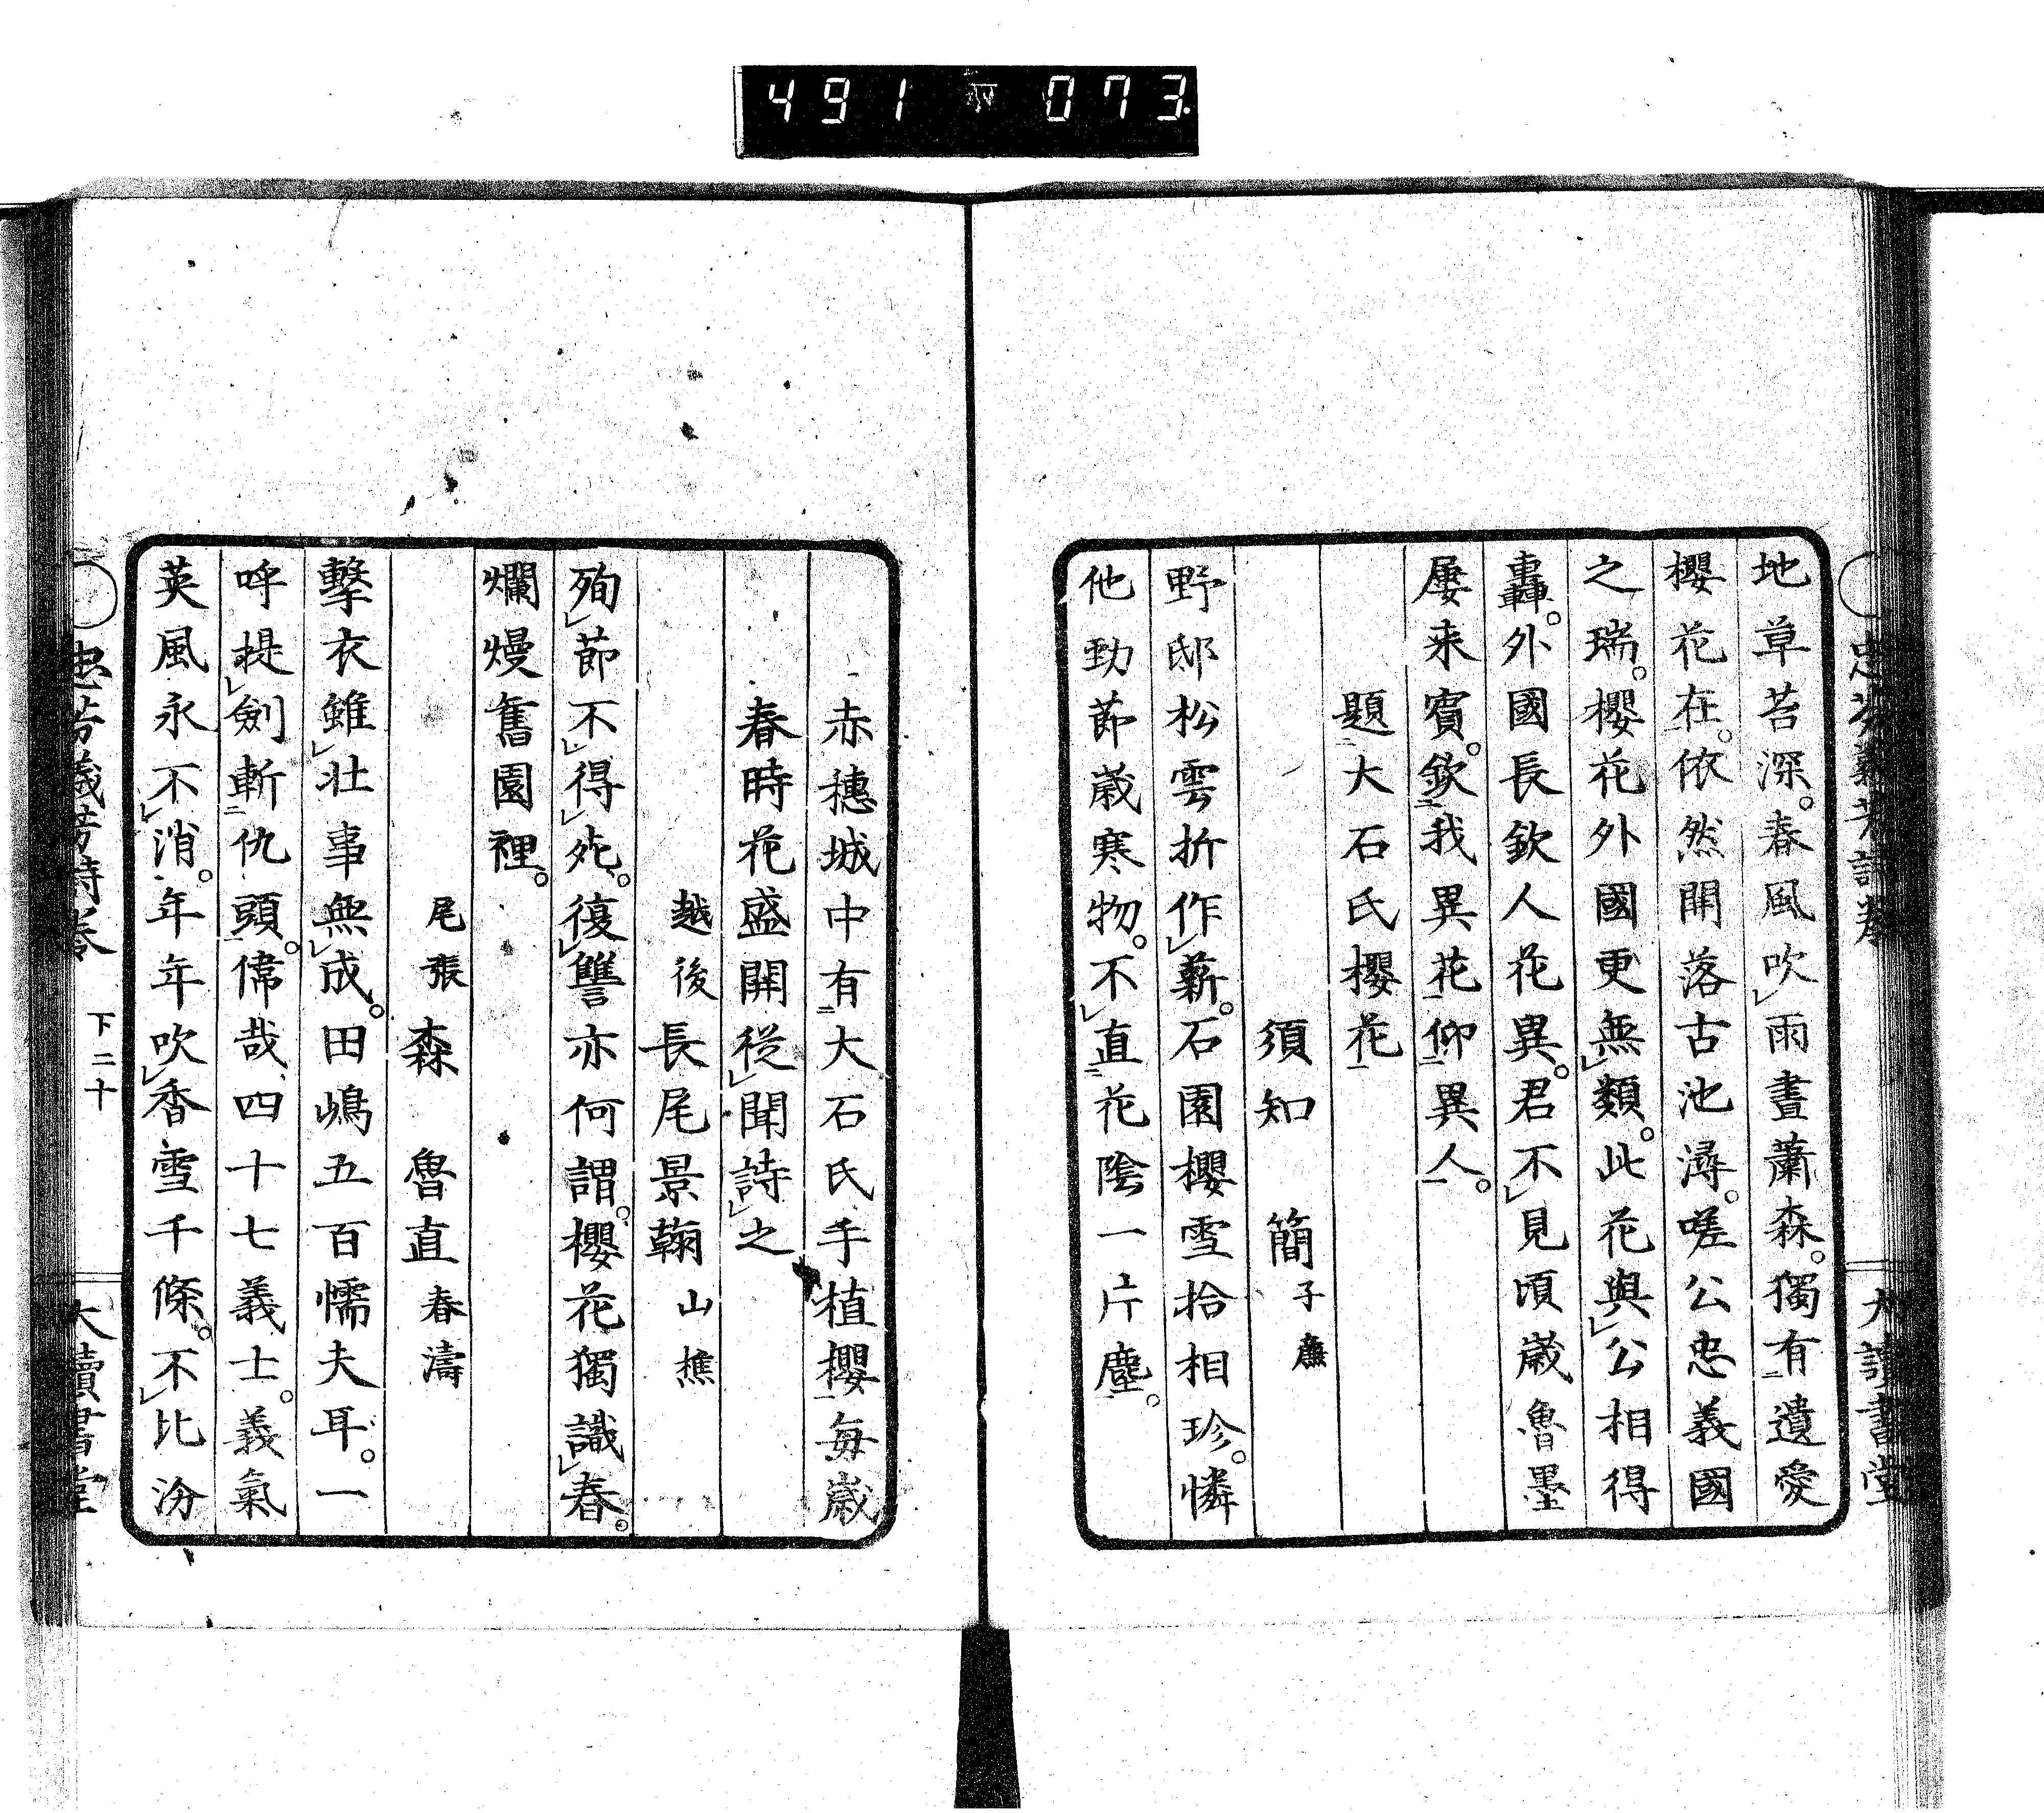 491 073
地草苔深。春風吹雨晝蕭森。獨有遺愛
櫻花在。依然開落古池潯。嗟公忠義國
之瑞。櫻花外國更無類。此花與公相得
轟。外國長欽人花異。君不見頃歲魯墨
屢来賓。欽我異花仰異人。
題大石氏櫻花
須知 簡 子廉
野邸松雲折作薪。石園櫻雪拾相珍。憐
他勁節歲寒物。不直花陰一片塵。
赤穗城中有大石氏手植櫻每歲
春時花盛開従聞詩之
越後 長尾景翰 山樵
殉節不得死。復讐亦何謂。櫻花獨識春。
爛熳舊園裡。
尾張 森 魯直 春濤
擊衣雖壮事無成。田嶋五百懦夫耳。一
呼提劍斬仇頭。偉哉四十七義士。義氣
英風永不消。年年吹香雪千條。不比汾
忠芬義芳詩巻 下二十 大讀書堂